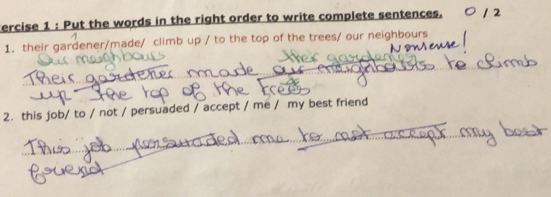 ercise 1 : Put the words in the right order to write complete sentences. 0 / 2
1. their gardener/made/ climb up / to the top of the trees/ our neighbours
Nonsense!
Our neighbours their gardener
Their gardener made our neighbours to climb
up the top of the trees
2. this job/ to / not / persuaded / accept / me / my best friend
This job persuaded me to not accept my best
friend